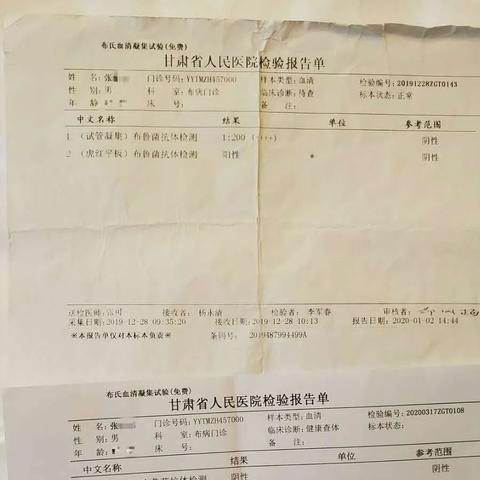 布氏血清凝集试验(免费)
甘肃省人民医院检验报告单
姓 名:张 门诊号码:YYTMZH457000 样本类型:血清 检验编号:20191228ZGT0143
性 别:男 科 室:布病门诊 临床诊断:待查 标本状态:正常
年 龄: 床 号: 备 注:
中文名称 结果 单位 参考范围
1 (试管凝集)布鲁菌抗体检测 1:200 (+++) 阴性
2 (虎红平板)布鲁菌抗体检测 阳性 阴性
送检医师: 接收者: 杨永清 检验者: 李军春 审核者:
采集日期:2019-12-28 09:35:20 接收日期:2019-12-28 10:13 报告日期:2020-01-02 14:44
※本报告单仅对本标本负责※ 条码号: 2019487994499A
布氏血清凝集试验(免费)
甘肃省人民医院检验报告单
姓 名:张 门诊号码:YYTMZH457000 样本类型:血清 检验编号:20200317ZGT0108
性 别:男 科 室:布病门诊 临床诊断:健康查体 标本状态:
年 龄: 床 号: 备 注:
中文名称 结果 单位 参考范围
抗体检测 阴性 阴性